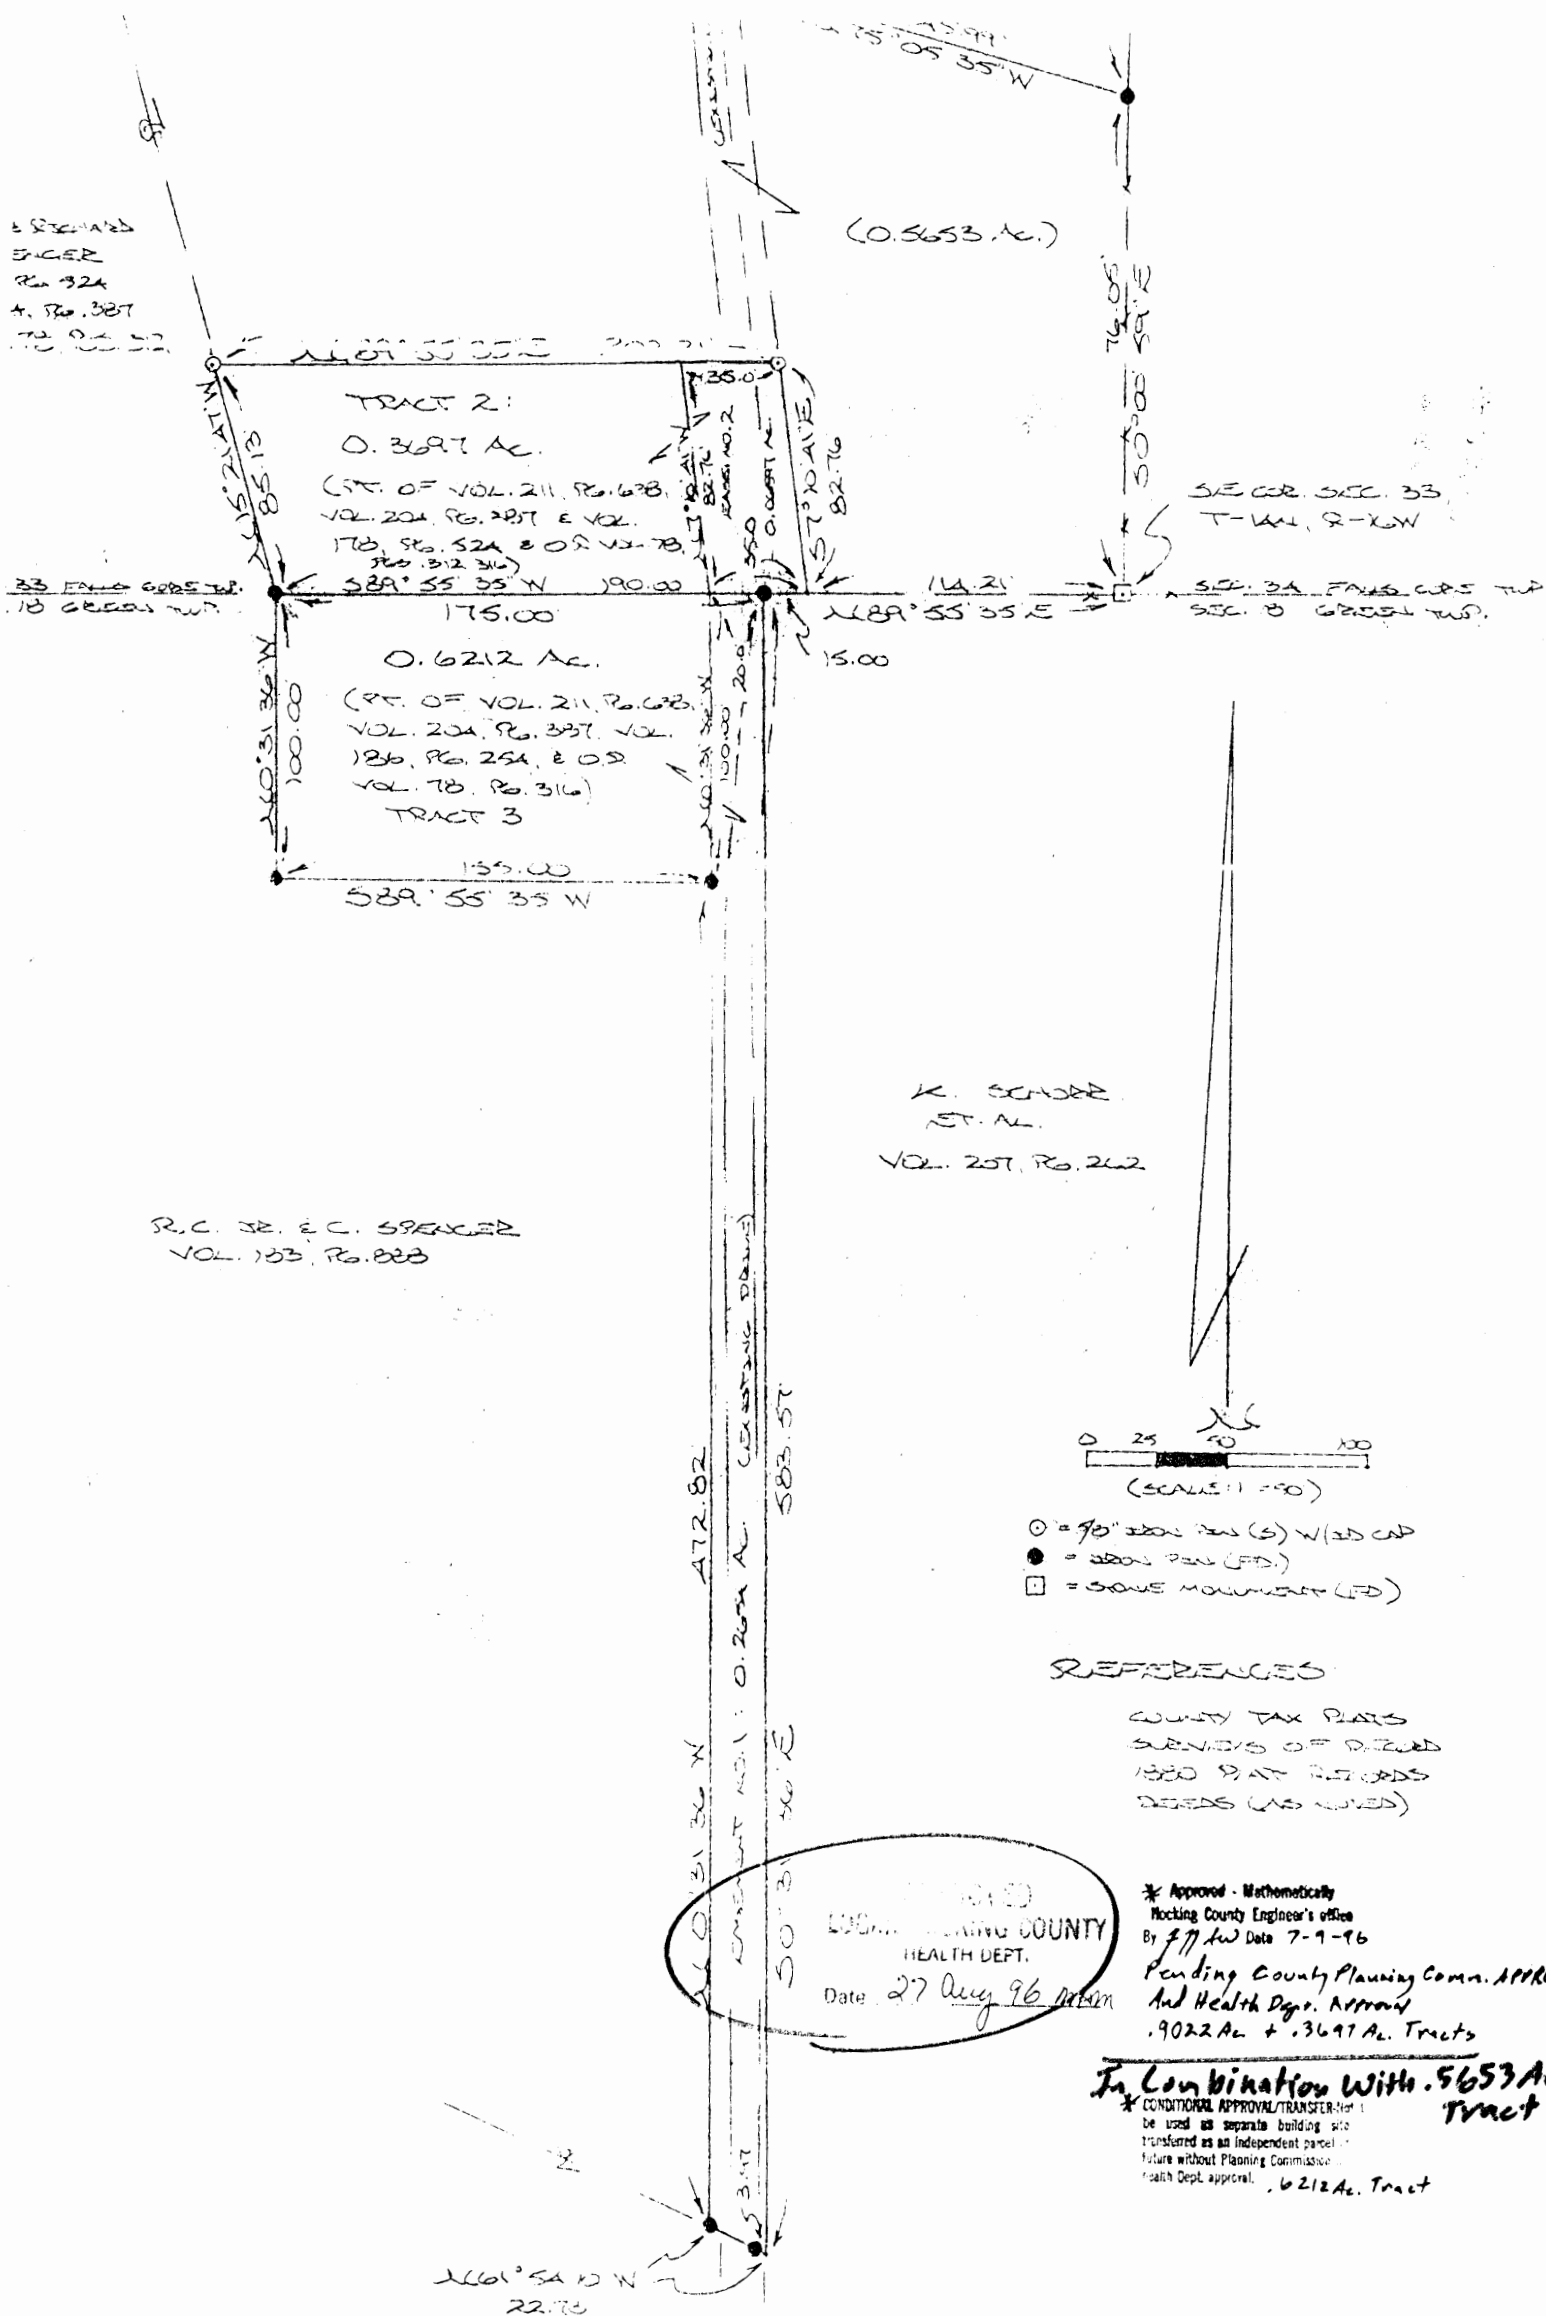 75° 05' 35" W
(0.5653 Ac.)
PG. 324
PG. 387
76.05'
S 0° 00' 59" E
35.0
TRACT 2:
0.3697 Ac.
(PT. OF VOL. 211, PG. 638,
VOL. 204, PG. & VOL.
178, PG. 524 & O.R. VOL. 78,
PGS. 312, 316)
N 15° 21' 47" W
85.13
82.76
EASE. NO. 2
35.0
0.0697 Ac.
S 7° 10' 41" E
82.76
SE COR. SEC. 33,
T-14N, R-16W
33 FALLS GORE TWP.
18 GREEN TWP.
S 89° 55' 35" W 190.00
175.00
114.21
N 89° 55' 35" E
15.00
SEC. 34 FALLS GORE TWP
GREEN TWP.
0.6212 Ac.
(PT. OF VOL. 211, PG. 638,
VOL. 204, PG. 387, VOL.
186, PG. 254, & O.R.
VOL. 78, PG. 316)
TRACT 3
N 0° 31' 36" W
100.00
N 0° 31' 36" W
100.00
20.0
155.00
S 89° 55' 35" W
K. SCHORR
ET. AL.
VOL. 207, PG. 262
R.C. JR. & C. SPENCER
VOL. 133, PG. 888
N 0° 31' 36" W 472.82
EASEMENT NO. 1: 0.2654 Ac. (EXISTING DRIVE)
S 0° 31' 36" E 583.57
N
0 25 50 100
(SCALE: 1"=50')
⊙ = 5/8" IRON PIN (S) W/ID CAP
● = IRON PIN (FD.)
⊡ = STONE MONUMENT (FD)
REFERENCES
COUNTY TAX PLATS
SURVEYS OF RECORD
1880 PLAT RECORDS
DEEDS (AS NOTED)
COUNTY
HEALTH DEPT.
Date 27 Aug 96
* Approved - Mathematically
Hocking County Engineer's office
By Date 7-9-96
Pending County Planning Comm.
And Health Dept. Approval
.9022 Ac. + .3697 Ac. Tracts
In Combination With .5653 Ac
Tract
* CONDITIONAL APPROVAL/TRANSFER-Not
be used as separate building site
transferred as an independent parcel
future without Planning Commission
Health Dept. approval. .6212 Ac. Tract
N 61° 54' 10" W
22.78